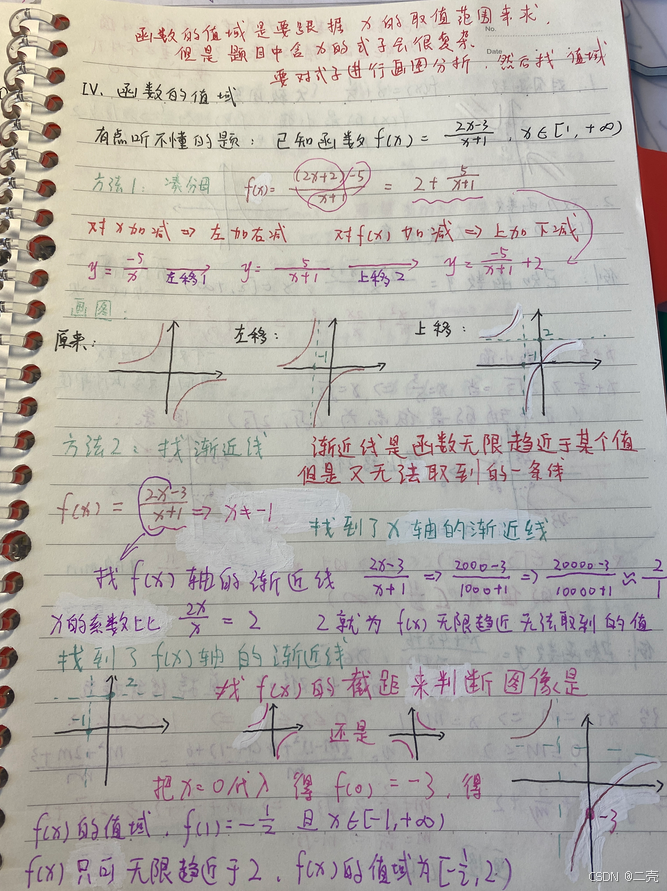 函数的值域是要根据 x 的取值范围来求,
No.
但是题目中含 x 的式子会很复杂.
Date
要对式子进行画图分析, 然后找值域
IV. 函数的值域
有点听不懂的题: 已知函数 f(x) = (2x-3)/(x+1), x∈[1, +∞)
方法1: 凑分母 f(x) = ((2x+2)-5)/(x+1) = 2 + 5/(x+1)
对 x 加减 => 左加右减 对 f(x) 加减 => 上加下减
y = -5/x 左移1 y = 5/(x+1) 上移2 y = -5/(x+1) + 2
画图:
原来: 左移: 上移:
-1 -1 2
方法2: 找渐近线 渐近线是函数无限趋近于某个值
但是又无法取到的一条线
f(x) = (2x-3)/(x+1) => x≠-1
找到了 x 轴的渐近线
找 f(x) 轴的渐近线 (2x-3)/(x+1) => (2000-3)/(1000+1) => (20000-3)/(10000+1) ≈ 2/1
x的系数比 2x/x = 2 2 就为 f(x) 无限趋近无法取到的值
找到了 f(x) 轴的渐近线
-1 2 找 f(x) 的截距来判断图像是
还是
把 x=0 代入 得 f(0) = -3, 得
-3
f(x) 的值域, f(1) = -1/2 且 x∈[-1, +∞)
f(x) 只可无限趋近于 2, f(x) 的值域为 [-1/2, 2)
CSDN @二壳